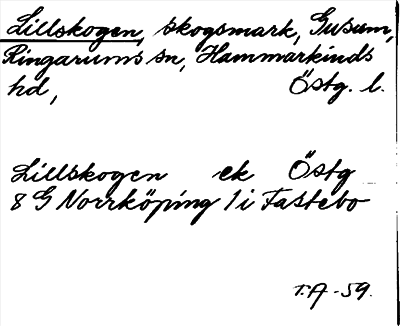 Lillskogen, skogsmark, Gusum,
Ringarums sn, Hammarkinds
hd, Östg. l.
Lillskogen ek Östg
8 G Norrköping 1 i Fastebo
T.A -59.